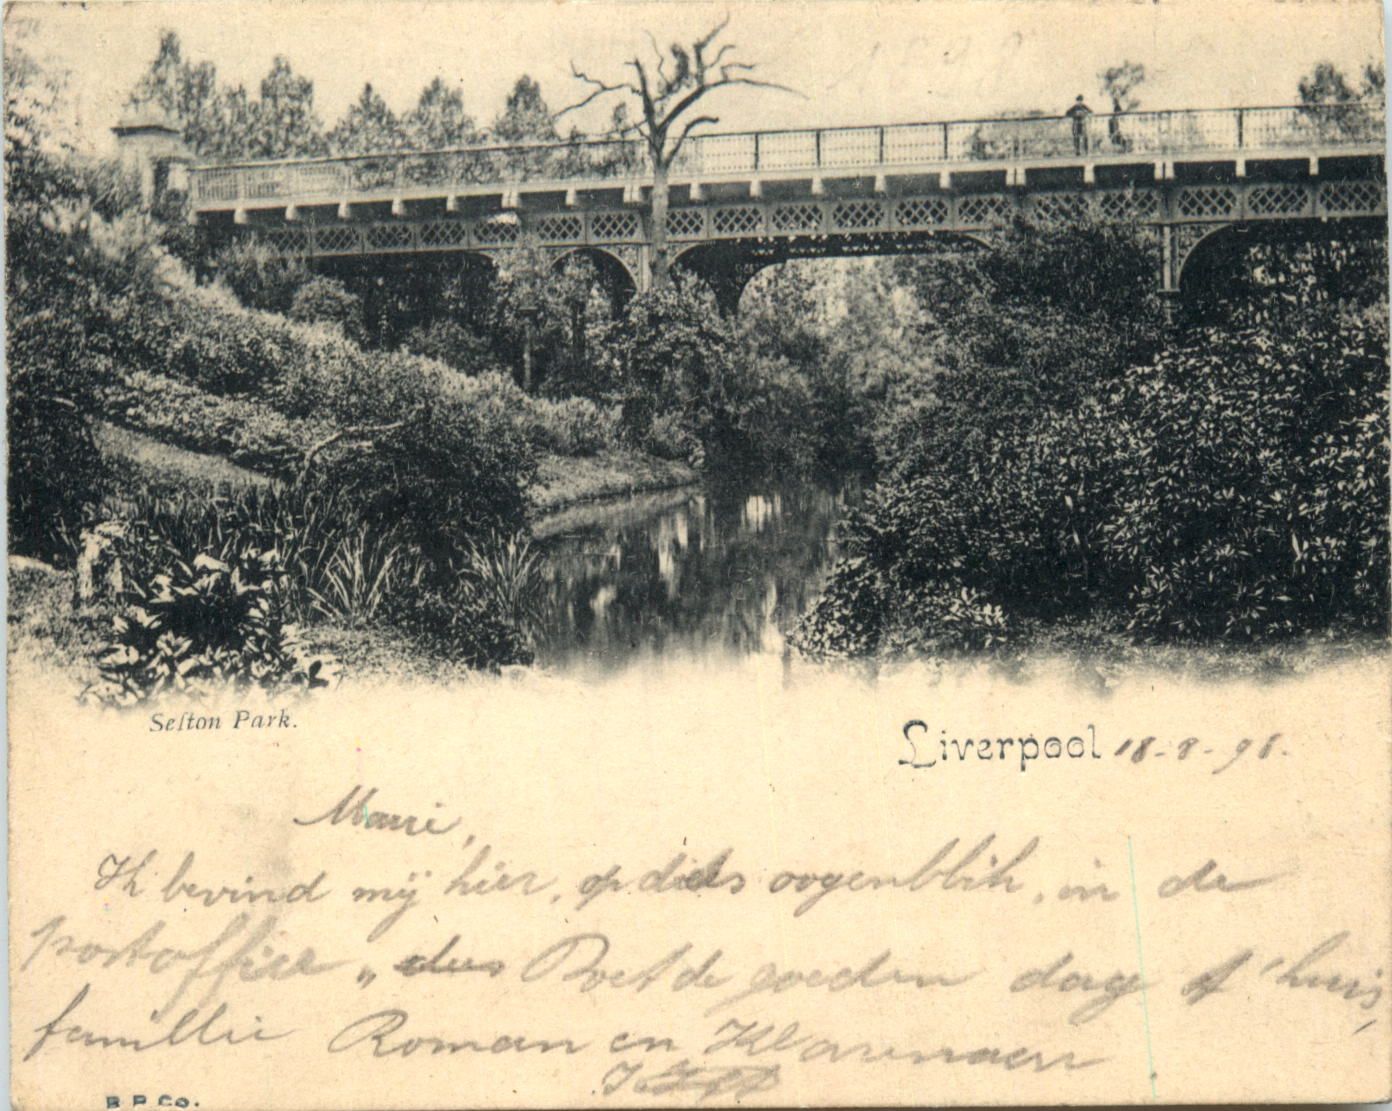 1898
Sefton Park.
Liverpool 18-8-98.
Marie,
Ik bevind mij hier, op dees oogenblik, in de
postoffice „dus Poet de goeden dag t'huis,
famillie Roman en
B.P.Co.